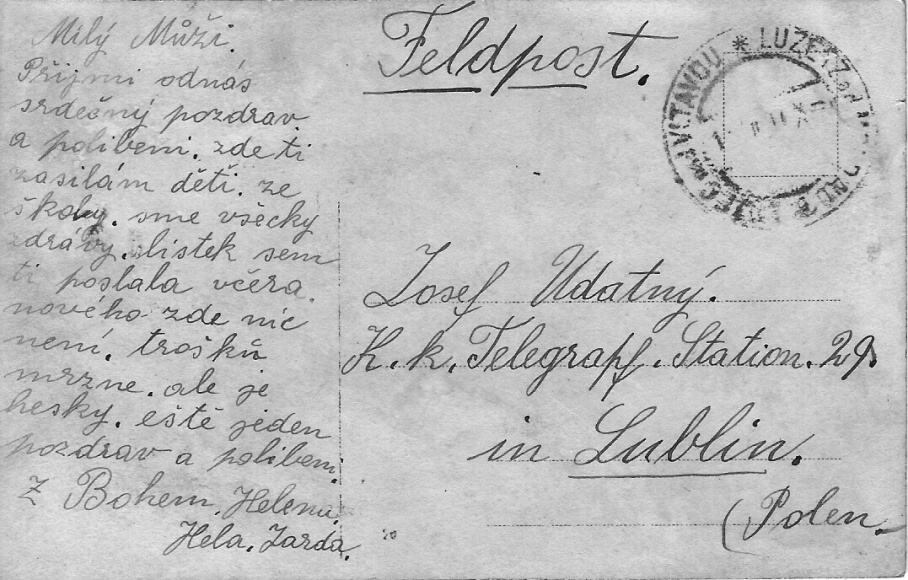 Milý Muži.
Přijmi odnás
srdečný pozdrav
a polibeni. zde ti
zasilám děti. ze
školy. sme všecky
zdrávy. listek sem
ti poslala včera.
nového zde nic
není. trošku
mrzne. ale je
hesky. eště jeden
pozdrav a polibeni.
Z Bohem. Helenu.
Hela. Jarda.
Feldpost.
LUŽETZ
Josef Udatný.
K. k. Telegrapf. Station. 29.
in Lublin.
(Polen.